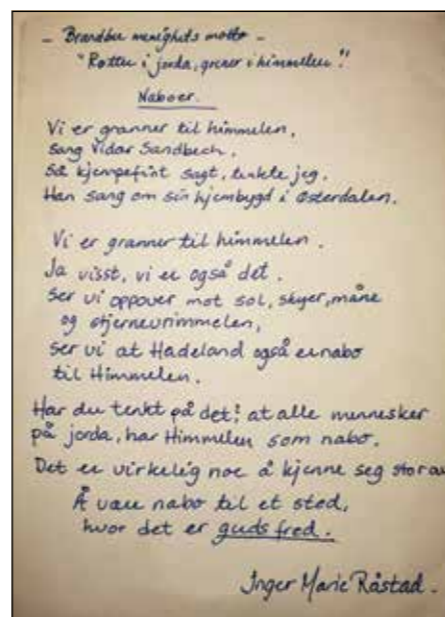 - Brandbu menighets motto -
"Røtter i jorda, grener i himmelen!"
Naboer.
Vi er granner til himmelen,
sang Vidar Sandbeck.
Så kjempefint sagt, tenkte jeg.
Han sang om sin hjembygd i Østerdalen.
Vi er granner til himmelen.
Ja visst, vi er også det.
Ser vi oppover mot sol, skyer, måne
og stjernevrimmelen,
ser vi at Hadeland også er nabo
til Himmelen.
Har du tenkt på det; at alle mennesker
på jorda, har Himmelen som nabo.
Det er virkelig noe å kjenne seg stor av
Å være nabo til et sted,
hvor det er guds fred.
Inger Marie Råstad -